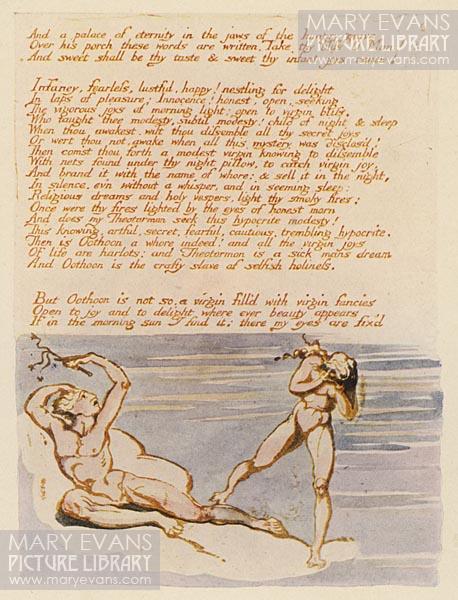 MARY EVANS
PICTURE LIBRARY
www.maryevans.com
And a palace of eternity in the jaws of the
Over his porch these words are written. Take thy
And sweet shall be thy taste & sweet thy infant joys renew!
Infancy, fearless, lustful, happy! nestling for delight
In laps of pleasure; Innocence! honest, open, seeking
The vigorous joys of morning light; open to virgin bliss,
Who taught thee modesty, subtil modesty! child of night & sleep
When thou awakest, wilt thou dissemble all thy secret joys
Or wert thou not, awake when all this mystery was disclos'd!
Then com'st thou forth a modest virgin knowing to dissemble
With nets found under thy night pillow, to catch virgin joy,
And brand it with the name of whore; & sell it in the night,
In silence, ev'n without a whisper, and in seeming sleep:
Religious dreams and holy vespers, light thy smoky fires:
Once were thy fires lighted by the eyes of honest morn
And does my Theotormon seek this hypocrite modesty!
This knowing, artful, secret, fearful, cautious, trembling hypocrite.
Then is Oothoon a whore indeed! and all the virgin joys
Of life are harlots: and Theotormon is a sick mans dream
And Oothoon is the crafty slave of selfish holiness.
But Oothoon is not so, a virgin fill'd with virgin fancies
Open to joy and to delight where ever beauty appears
If in the morning sun I find it; there my eyes are fix'd
MARY EVANS
PICTURE LIBRARY
www.maryevans.com
MARY EVANS
PICTURE LIBRARY
www.maryevans.com